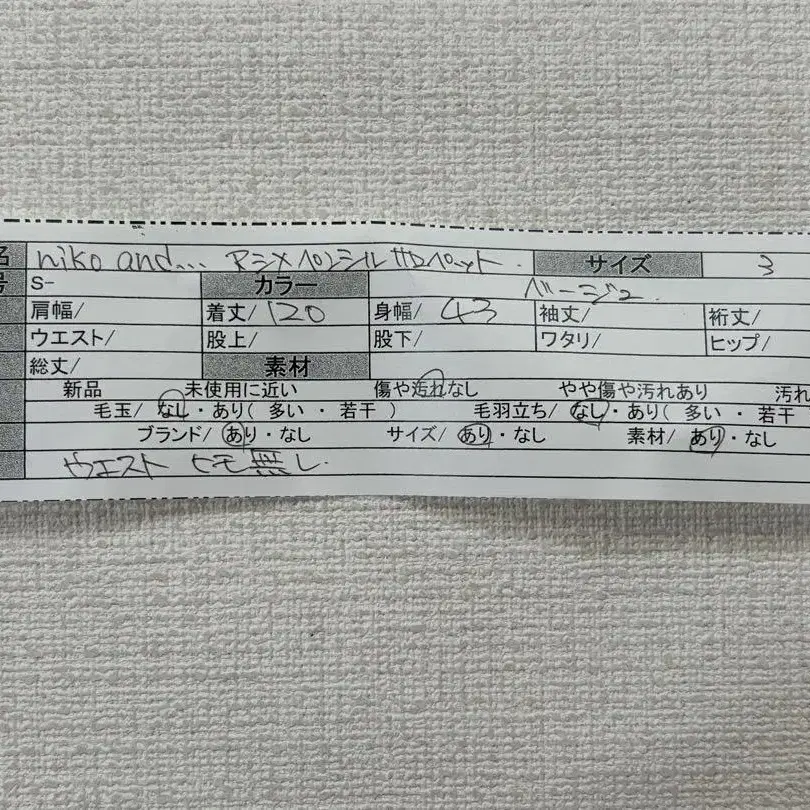 名 niko and... マシメペンシルサロペット. サイズ 3
号 S- カラー ベージュ.
肩幅/ 着丈/120 身幅/ 43 袖丈/ 裄丈/
ウエスト/ 股上/ 股下/ ワタリ/ ヒップ/
総丈/ 素材
新品 未使用に近い 傷や汚れなし やや傷や汚れあり 汚れ
毛玉/ なし・あり( 多い ・ 若干 ) 毛羽立ち/ なし・あり( 多い ・ 若干
ブランド/ あり・なし サイズ/ あり・なし 素材/ あり・なし
ウエスト ヒモ無し.